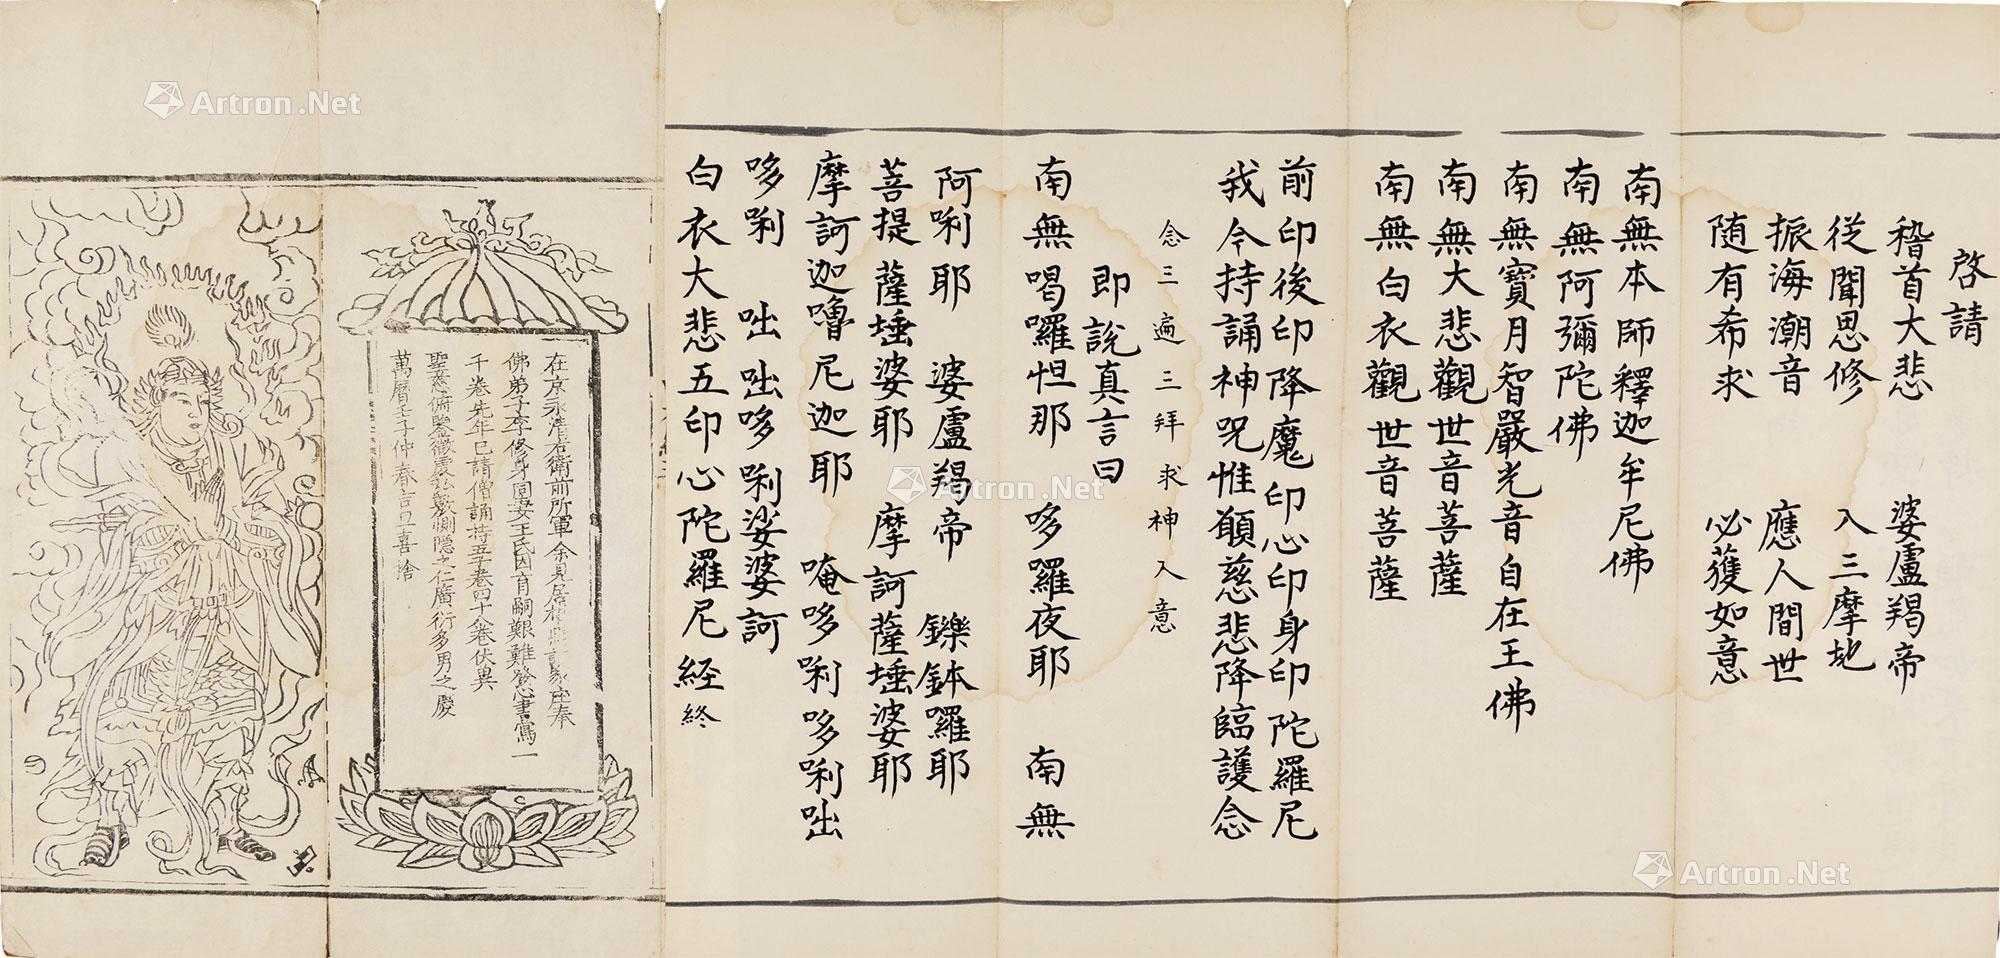 啓請
稽首大悲　婆盧羯帝
從聞思修　入三摩地
振海潮音　應人間世
随有希求　必獲如意
南無本師釋迦牟尼佛
南無阿彌陀佛
南無寶月智嚴光音自在王佛
南無大悲觀世音菩薩
南無白衣觀世音菩薩
前印後印降魔印心印身印　陀羅尼
我今持誦神呪惟願慈悲降臨護念
念三遍三拜求神入意
即說真言曰
南無喝囉怛那　哆羅夜耶　南無
阿唎耶　婆盧羯帝　鑠鉢囉耶
菩提薩埵婆耶　摩訶薩埵婆耶
摩訶迦嚕尼迦耶　唵哆唎哆唎咄
哆唎　咄咄哆唎娑婆訶
白衣大悲五印心陀羅尼経終
在京永清右衛前所軍余見居
佛弟子李修身同妻王氏因育嗣艱難發心書寫一
千巻先年已請僧誦持五千巻四十八巻伏異
聖慈俯鑒微虔弘敷惻隠之仁廣衍多男之慶
萬曆壬子仲春吉旦喜捨
Artron.Net
Artron.Net
Artron.Net
Artron.Net